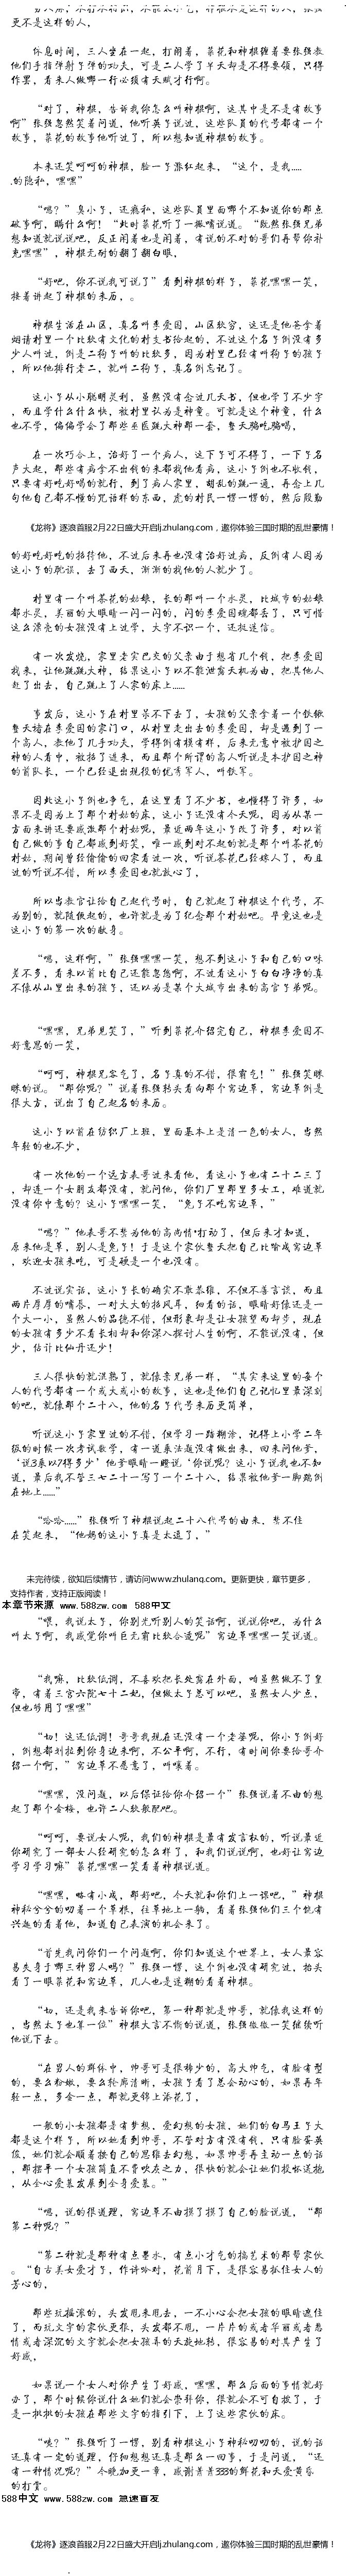 更不是这样的人，
休息时间，三人坐在一起，打闹着，菜花和神棍缠着要张强教
他们手指弹射子弹的功夫，可是二人学了半天却是不得要领，只得
作罢，看来人做哪一行必须有天赋才行啊。
“对了，神棍，告诉我你怎么叫神棍啊，这其中是不是有故事
啊”张强忽然笑着问道，他听英子说过，这些队员的代号都有一个
故事，菜花的故事他听过了，所以想知道神棍的故事。
本来还笑呵呵的神棍，脸一下涨红起来，“这个，是我……
的隐私，嘿嘿”
“嗯？”臭小子，还瘾私，这些队員里面哪个不知道你的那点
破事啊，瞒什么啊！”此时菜花听了一撇嘴说道。“既然张强兄弟
想知道就说说吧，反正闲着也是闲着，有说的不对的哥们再帮你补
充嘿嘿”，神棍无耐的翻了翻白眼，
“好吧，你不说我可说了”看到神棍的样子，菜花嘿嘿一笑，
接着讲起了神棍的来历，。
神棍生活在山区，真名叫李爱国，山区较穷，这还是他爸拿着
烟请村里一个比较有文化的村支书给起的，不过这个名字倒没有多
少人叫过，倒是二狗子叫的比较多，因为村里已经有叫狗子的孩子
，所以他排行老二，就叫二狗子，真名倒忘记了。
这小子从小聪明灵利，虽然没有念过几天书，但也学了不少字
，而且学什么什么快，被村里认为是神童。可就是这个神童，什么
也不学，偏偏学会了那些巫医跳大神那一套，整天骗吃骗喝，
在一次巧合上，治好了一个病人，这下子可不得了，一下子名
声大起，那些有病拿不出钱的来都找他看病，这小子倒也不收钱，
只要有好吃好喝的就行，到了病人家里，胡乱的跳一通，再念上几
句他自己都不懂的咒语样的东西，虎的村民一愣一愣的，然后殷勤
《龙将》逐浪首服2月22日盛大开启lj.zhulang.com，邀你体验三国时期的乱世豪情！
的好吃好吃的招待他，不过后来再也没有治好过病，反倒有人因为
这小子的耽误，去了西天，渐渐的找他的人就少了。
村里有一个叫茶花的姑娘，长的那叫一个水灵，比城市的姑娘
都水灵，美丽的大眼睛一闪一闪的，闪的李爱国魂都丢了，只可惜
这么漂亮的女孩没有上过学，大字不识一个，还挺迷信。
有一次发烧，家里老实巴交的父亲由于想省几个钱，把李爱国
找来，让他跳跳大神，结果这小子以不能泄露天机为由，把其他人
赶了出去，自己跳上了人家的床上……
事发后，这小子在村里呆不下去了，女孩的父亲拿着一个铁锹
整天堵在李爱国的家门口，从村里走出去的李爱国，却是遇到了一
个高人，教他了几手功夫，学得倒有模有样，后来无意中被护国之
神的人看中，被招了进来，而且那个所谓的高人听说是本护国之神
的首队长，一个已经退出现役的优秀军人，叫铁军。
因此这小子倒也争气，在这里看了不少书，也懂得了许多，如
果不是因为上了那个村姑的床，这小子还没有今天呢，因为从某一
方面来讲还要感激那个村姑呢，最近两年这小子改了许多，对以前
自己做的事自己都感到好笑，唯一感到对不起的就是那个叫茶花的
村姑，期间曾经偷偷的回家看过一次，听说茶花已经嫁人了，而且
过的听说不错，所以李爱国也就放心了，
所以当教官让给自己起代号时，自己就起了神棍这个代号，不
为别的，就随便起的，也许就是为了纪念那个村姑吧。毕竟这也是
这小子的第一次的献身。
“嗯，这样啊，”张强嘿嘿一笑，想不到这小子和自己的口味
差不多，看来以前比自己还能忽悠啊，不过看这小子白白净净的真
不像从山里出来的孩子，还以为是某个大城市出来的高官子弟呢。
“嘿嘿，兄弟见笑了，”听到菜花介绍完自己，神棍李爱国不
好意思的一笑，
“呵呵，神棍兄客气了，名字真的不错，很霸气！”张强笑眯
眯的说。“那你呢？”说着张强转头看向那个窝边草，窝边草倒是
很大方，说出了自己起名的来历。
这小子以前在纺织厂上班，里面基本上是清一色的女人，当然
年轻的也不少，
有一次他的一个远方表哥过来看他，看这小子也有二十二三了
，却连一个女朋友都没有，就问他，你们厂里那里多女工，难道就
没有你中意的？这小子嘿嘿一笑，“兔子不吃窝边草，”
“嗯？”他表哥不禁为他的高尚情操打动了，但后来才知道，
原来他是草，别人是兔子！于是这个家伙整天把自己比喻成窝边草
，欢迎女孩来吃，可是硬是一个也没有。
不过说实话，这小子长的确实不敢恭维，不但不善言谈，而且
两片厚厚的嘴唇，一对大大的招风耳，细看的话，眼睛好像还是一
个大一小，虽然人的品德不错，但形象却是让女孩望而却步，现在
的女孩有多少不看长相却和你深入探讨人生的啊，不能说没有，但
少，估计比仙丹还少！
三人很快的就混熟了，就像亲兄弟一样，“其实来这里的每个
人的代号都有一个或大或小的故事，这也是他们自己记忆里最深刻
的吧，就像那个二十八，他的名字代号来历更简单，
听说这小子家里过的不错，但学习一踏糊涂，记得上小学二年
级的时候一次考试数学，有一道乘法题没有做出来，回来问他爹，
‘说3乘以7得多少’他爹眼睛一瞪说‘你说呢？这小子说我也不知
道，最后我不管三七二十一写了一个二十八，结果被他爹一脚踹倒
在地上……”
“哈哈……”张强听了神棍说起二十八代号的由来，禁不住
在笑起来，“他妈的这小子真是太逗了，”
未完待续，欲知后续情节，请访问www.zhulang.com。更新更快，章节更多，
支持作者，支持正版阅读！
本章节来源 www.588zw.com 588中文
“喂，我说太子，你别光听别人的笑话啊，说说你吧，为什么
叫太子啊，我感觉你叫巨无霸比较合适呢”窝边草嘿嘿一笑说道。
“我嘛，比较低调，不喜欢把长处露在外面，咱虽然做不了皇
帝，有着三宫六院七十二妃，但做太子总可以吧，虽然女人少点，
但也够用了嘿嘿”
“切！这还低调！哥哥我现在还没有一个老婆呢，你小子倒好
，倒想都划拉到你身边来啊，不公平啊，不行，有时间你要给哥介
绍一个啊，”窝边草不愿意了，叫嚷着。
“嘿嘿，没问题，以后保证给你介绍一个”张强说着不由的想
起了那个金梅，也许二人较般配吧。
“呵呵，要说女人呢，我们的神棍是最有发言权的，听说最近
你研究了一部女人经研究的怎么样了，和我们说说啊，也好让窝边
学习学习嘛”菜花嘿嘿一笑看着神棍说道。
“嘿嘿，略有小成，那好吧，今天就和你们上一课吧，”神棍
神秘兮兮的叨着一个草根，往草地上一躺，看着张强他们三个饶有
兴趣的看着他，知道自己表演的机会来了。
“首先我问你们一个问题啊，你们知道这个世界上，女人最容
易失身于哪三种男人吗？”张强一愣，这个倒也没有研究过，抬头
看了一眼菜花和窝边草，几人也是迷糊的看着神棍。
“切，还是我来告诉你吧，第一种那就是帅哥，就像我这样的
，当然太子也算一位”神棍大言不惭的说道，张强微微一笑继续听
他说下去。
“在男人的群体中，帅哥可是很稀少的，高大帅气，有脸有型
的，要么粉嫩，要么轮廓清晰，女孩子看了总会动心的，如果再年
轻一点，多金一点，那就更锦上添花了，
一般的小女孩都是有梦想，爱幻想的女孩，她们的白马王子大
都是这个样子，所以她看到帅哥，不管对方有没有钱，只有脸蛋英
俊，她们就会顺着按自己的思维去幻想，如果帅哥再主动一点的话
，那摆平一个女孩简直不费吹灰之力，很快的就会让她们投怀送抱
，从全心爱慕发展到全身爱慕。”
“嗯，说的很道理，窝边草不由摸了摸了自己的脸说道，“那
第二种呢？”
“第二种就是那种有点墨水，有点小才气的搞艺术的那帮家伙
。“自古美女爱才子，作诗吟对，花前月下，是很容易抓住女人的
芳心的，
那些玩摇滚的，头发甩来甩去，一不小心会把女孩的眼睛遮住
了，而玩文字的家伙更狠，头发都不甩，一片片的或者华丽或者悲
情或者深沉的文字就会把女孩弄的天旋地转，很容易的对其产生了
好感，
如果说一个女人对你产生了好感，嘿嘿，那么后面的事情就好
办了，那个时候你说什么她们就会崇拜你，很就会不可自拔了，于
是一批批的女孩在那些文字的指引下，上了这些家伙的床。
“咦？”张强听了一愣，别看神棍这小子神秘叨叨的，说的话
还真有一定的道理，仔细想想还真是那么一回事，于是问道，“还
有一种情况呢？”今晚加更一章，感谢菁菁333的鲜花和天爱黄昏
的打赏。
588中文 www.588zw.com 急速首发
《龙将》逐浪首服2月22日盛大开启lj.zhulang.com，邀你体验三国时期的乱世豪情！